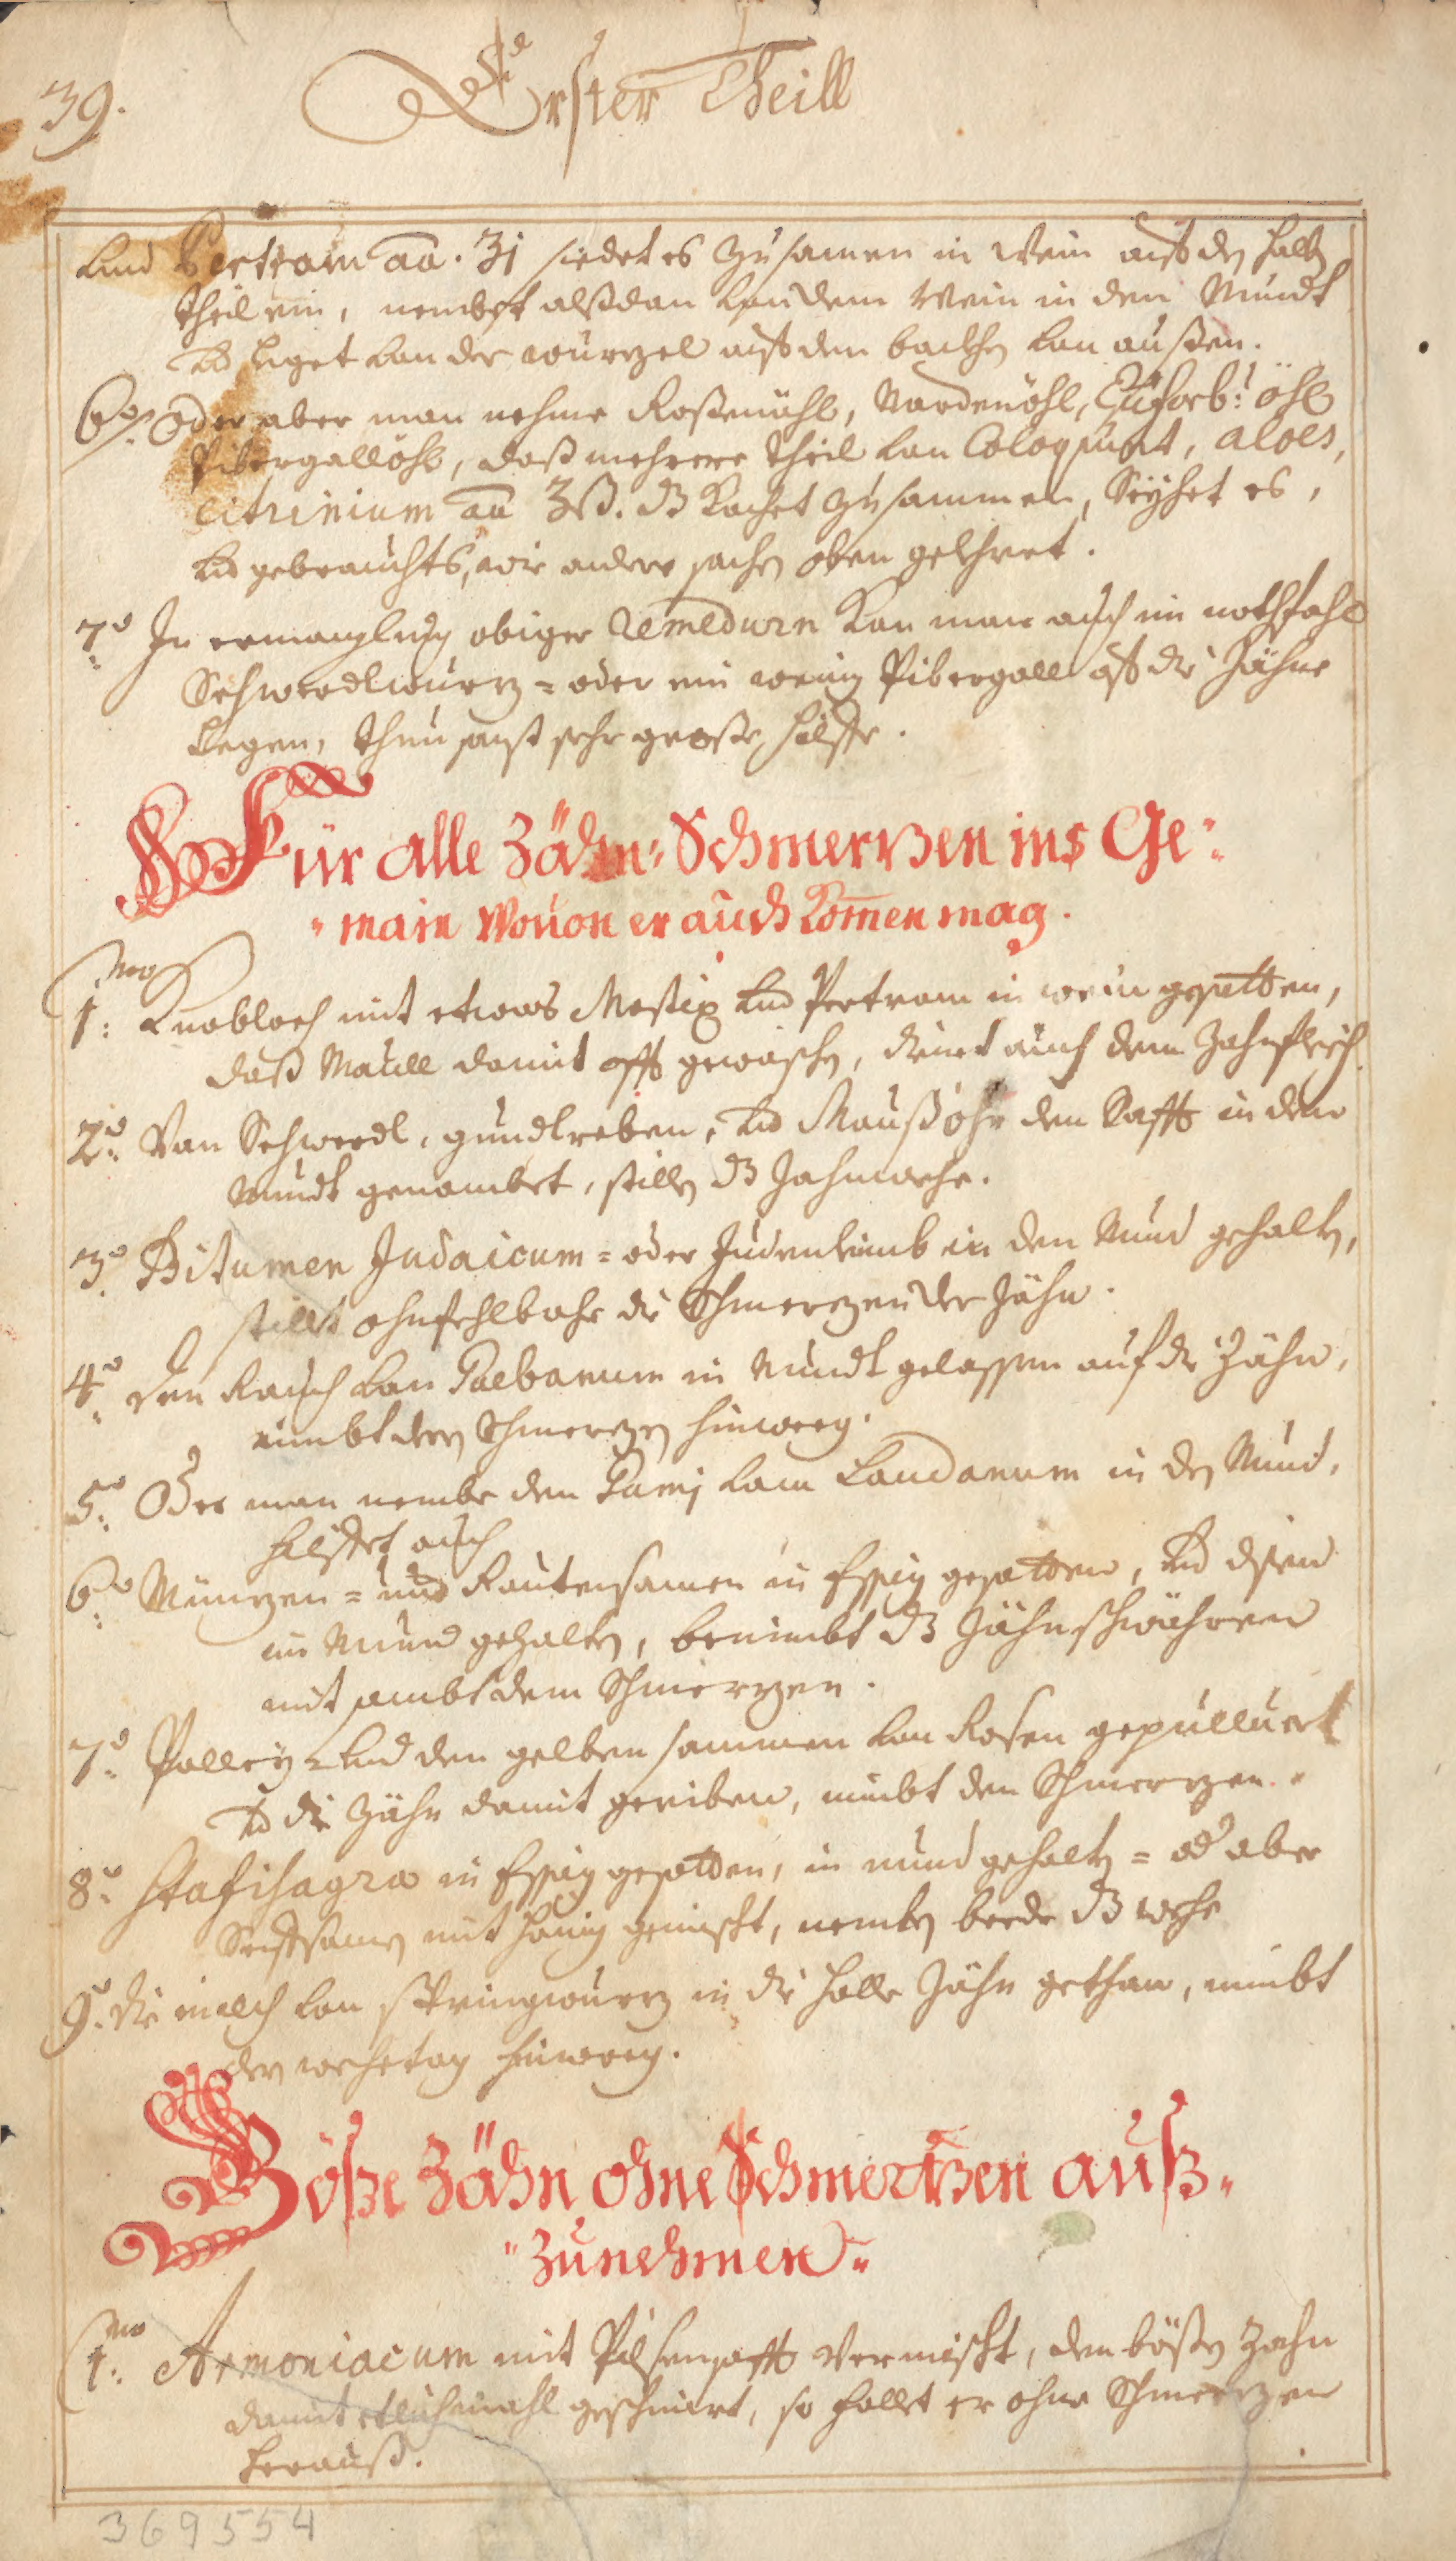 39.
Erster Theill
Und Pertram aa. ʒj siedet es zusamen in Wein auf den halb
theil ein, nembet alßdan von dem Wein in den Mundt
und leget von der wurzel auf den backhen von außen.
6to. Oder aber man nehme Rosenöhl, Nardenöhl, Euforb: öhl
Pibergallöhl, daß mehrere theil von Coloquint, aloes,
citrinium aa ʒß. dß kochet zusammen, Seyhet es,
und gebrauchts, wie andere sachen oben gelehret.
7o In ermanglung obiger Remedurn kan man auch im nothfahl
Schwerdlwurz = oder ein wenig Pibergall auf die Zähne
legen, thun sonst sehr große hülffe.
Für alle Zähn: Schmertzen ins Ge:
main Wouon er auch komen mag.
1mo: Knobloch mit etwas Mastix und Pertram in wein gesotten,
daß Maull damit offt gewaschen, dienet auch dem Zahnfleisch.
2do: Von Schwerdl, gundlreben, und Maußohr den Safft in dem
Mundt genombet, stillen dß Zahnwehe.
3o. Bitumen Judaicum = oder Judenleimb in den Mund gehalten,
stillet ohnfehlbahr die Schmerzen der Zähn.
4o: Den Rauch von Galbanum in Mundt gelassen auf die Zähn,
nimbt den Schmerzen hinweg.
5o: Oder man nembe den Gumj vom Laudanum in den Mund,
hilffet auch
6o: Münzen = und Rautensamen in Essig gesotten, und disen
im Mund gehalten, benimbt dß Zähnschwähren
mit sambt dem Schmerzen.
7o: Polley und den gelben sammen von Rosen gepulluert
und die Zähn damit geriben, nimbt den Schmerzen.
8o: Stafisagra in Essig gesotten, in mund gehalten = od aber
Senfsamen mit honig gemischt, nemben beede dß wehe
9o: Die milch von springwurz in die holle Zähn gethan, nimbt
den wehetag hinweg.
Böße Zähn ohne Schmertzen auß-
zunehmen.
1mo: Armoniacum mit Pilsensafft vermischt, den bößen Zahn
damit etlichmahl geschmirt, so fallet er ohne Schmerzen
herauß.
369554